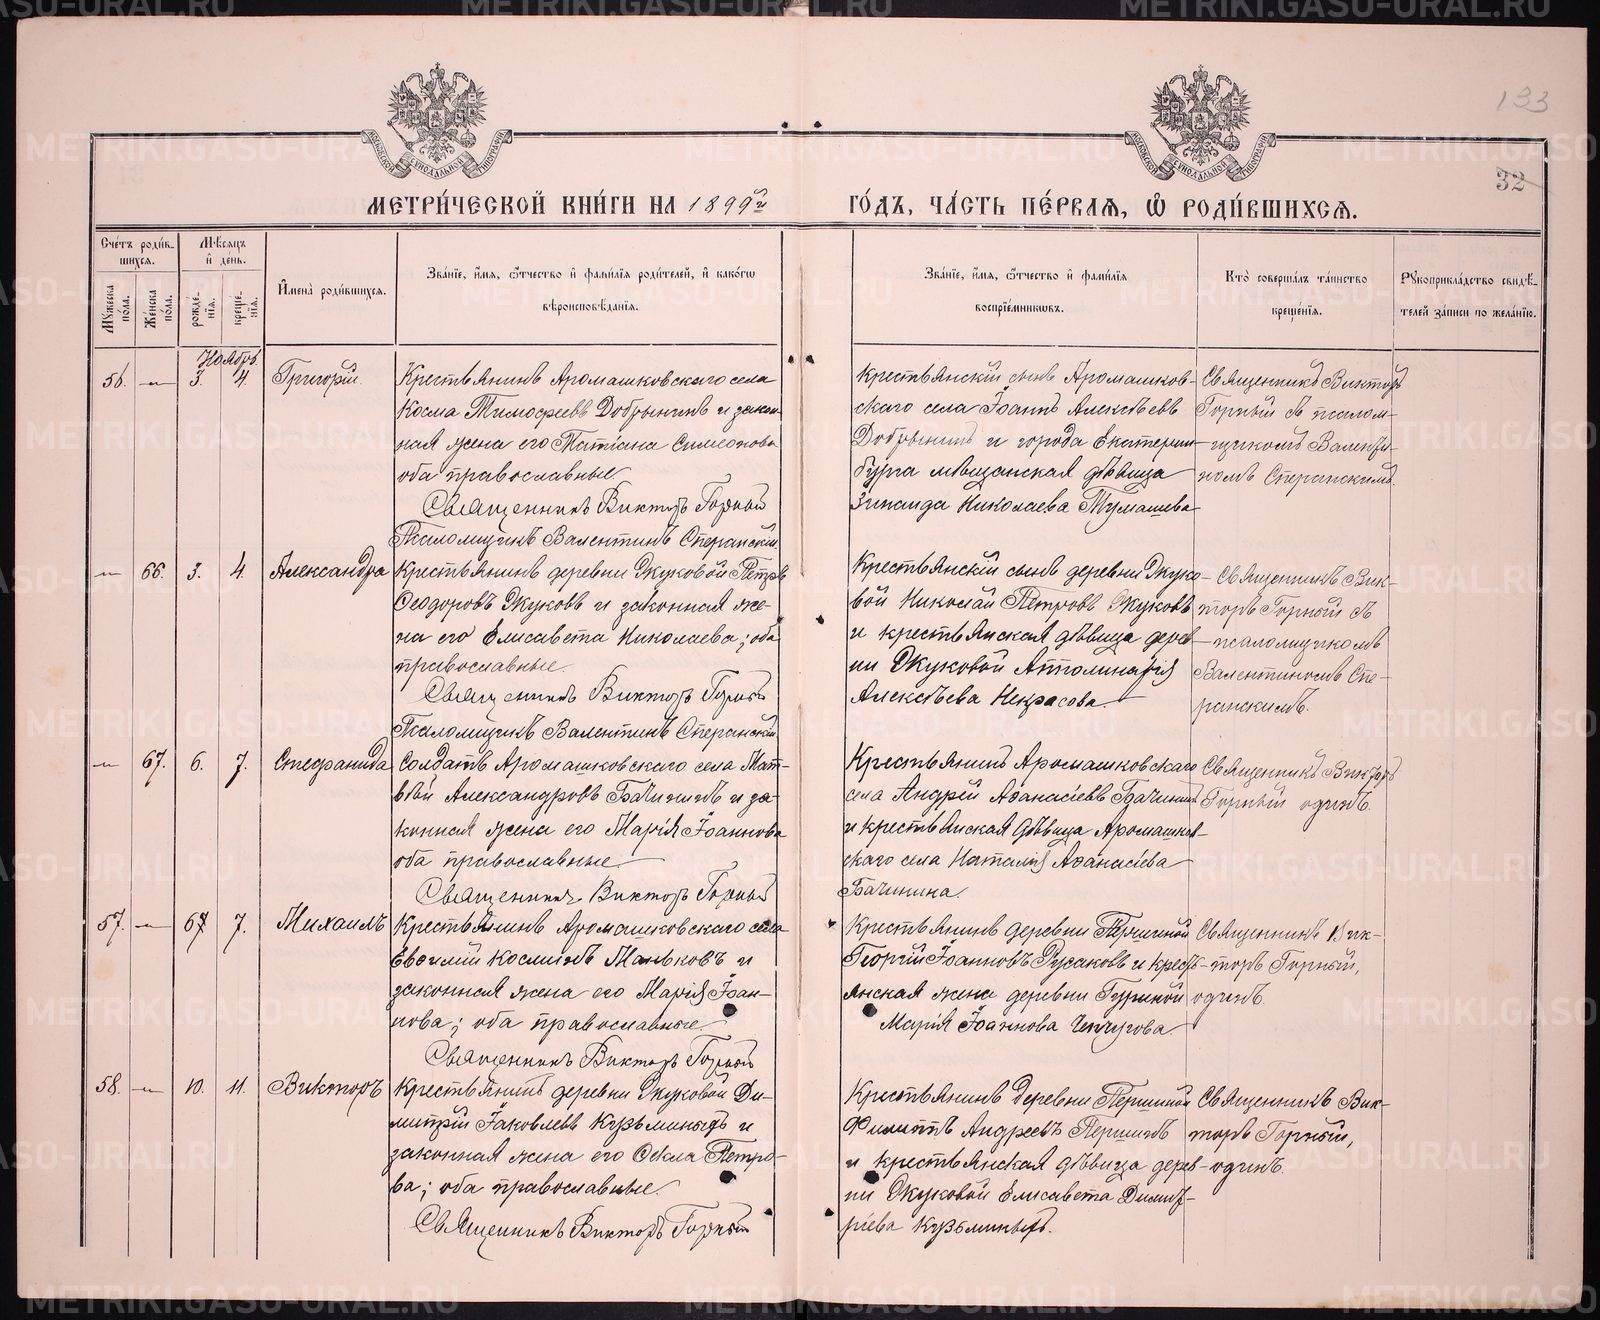 METRIKI.GASO-URAL.RU
133
МОСКОВСКОЙ СѴНОДАЛЬНОЙ ТИПОГРАФІИ
МОСКОВСКОЙ СѴНОДАЛЬНОЙ ТИПОГРАФІИ
32
МЕТРИ́ЧЕСКОЙ КНИ́ГИ НА 1899й
ГО́ДЪ, ЧА́СТЬ ПЕ́РВАЯ, Ѡ҆ РОДИ́ВШИХСЯ.
Сче́тъ роди́в-
шихся.
Мѣ́сяцъ
и҆ день.
Мꙋжеска по́ла.
Же́нска по́ла.
рожде́нїя.
креще́нїя.
И҆мена̀ роди́вшихся.
Зва́нїе, и҆́мя, ѻ҆́тчество и҆ фами́лїя роди́телей, и҆ како́гѡ
вѣроисповѣ́данїя.
Зва́нїе, и҆́мя, ѻ҆́тчество и҆ фами́лїя
воспрїе́мникѡвъ.
Кто̀ соверша́лъ та́инство
креще́нїя.
Рꙋкоприкла́дство свидѣ́-
телей за́писи по жела́нїю.
Ноябрь
56. — 3. 4. Григорій.
Крестьянинъ Аромашковскаго села
Косма Тимоѳеевъ Добрынинъ и закон-
ная жена его Татіана Симеонова
оба православные.
Священникъ Викторъ Горный
Псаломщикъ Валентинъ Сперанскій.
Крестьянскій сынъ Аромашков-
скаго села Іоаннъ Алексѣевъ
Добрынинъ и города Екатерин-
бурга мѣщанская дѣвица
Зинаида Николаева Тумашева
Священникъ Викторъ
Горный съ псалом-
щикомъ Валенти-
номъ Сперанскимъ.
— 66. 3. 4. Александра
Крестьянинъ деревни Жуковой Петръ
Ѳеодоровъ Жуковъ и законная же-
на его Елисавета Николаева; оба
православные.
Священникъ Викторъ Горный
Псаломщикъ Валентинъ Сперанскій.
Крестьянскій сынъ деревни Жуко-
вой Николай Петровъ Жуковъ
и крестьянская дѣвица дерев-
ни Жуковой Апполинарія
Алексѣева Некрасова.
Священникъ Вик-
торъ Горный съ
псаломщикомъ
Валентиномъ Спе-
ранскимъ.
— 67. 6. 7. Стефанида
Солдатъ Аромашковскаго села Мат-
вѣй Александровъ Бачининъ и за-
конная жена его Марія Іоаннова
оба православные
Священникъ Викторъ Горный
Крестьянинъ Аромашковскаго
села Андрей Аѳанасіевъ Бачининъ
и крестьянская дѣвица Аромашков-
скаго села Наталія Аѳанасіева
Бачинина.
Священникъ Викторъ
Горный одинъ.
57. — 7. Михаилъ
Крестьянинъ Аромашковскаго села
Евѳимій Косминъ Маньковъ и
законная жена его Марія Іоан-
нова; оба православные.
Священникъ Викторъ Горный
Крестьянинъ деревни Першиной
Георгій Іоанновъ Русаковъ и кресть-
янская жена деревни Гуриной
Марія Іоаннова Чепчугова
Священникъ Вик-
торъ Горный,
одинъ.
58. — 10. 11. Викторъ
Крестьянинъ деревни Жуковой Ди-
митрій Іаковлевъ Кузьминыхъ и
законная жена его Ѳекла Петро-
ва; оба православные.
Священникъ Викторъ Горный
Крестьянинъ деревни Першиной
Филиппъ Андреевъ Першинъ
и крестьянская дѣвица дерев-
ни Жуковой Елисавета Димит-
ріева Кузьминыхъ.
Священникъ Вик-
торъ Горный,
одинъ.